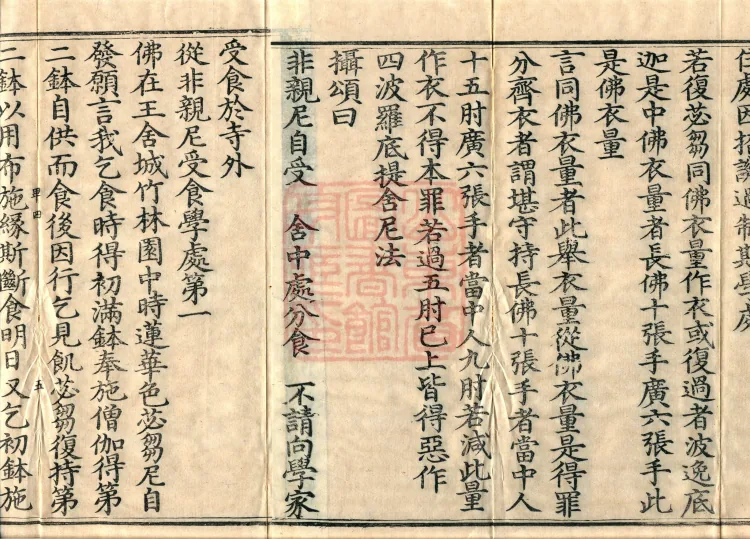 住處因招譏過制斯學處
若復苾芻同佛衣量作衣或復過者波逸底
迦是中佛衣量者長佛十張手廣六張手此
是佛衣量
言同佛衣量者此舉衣量從佛衣量是得罪
分齊衣者謂堪守持長佛十張手者當中人
十五肘廣六張手者當中人九肘若減此量
作衣不得本罪若過五肘已上皆得惡作
四波羅底提舍尼法
攝頌曰
非親尼自受 舍中處分食 不請向學家
受食於寺外
從非親尼受食學處第一
佛在王舍城竹林園中時蓮華色苾芻尼自
發願言我乞食時得初滿鉢奉施僧伽得第
二鉢自供而食後因行乞見飢苾芻復持第
二鉢以用布施緣斯斷食明日又乞初鉢施